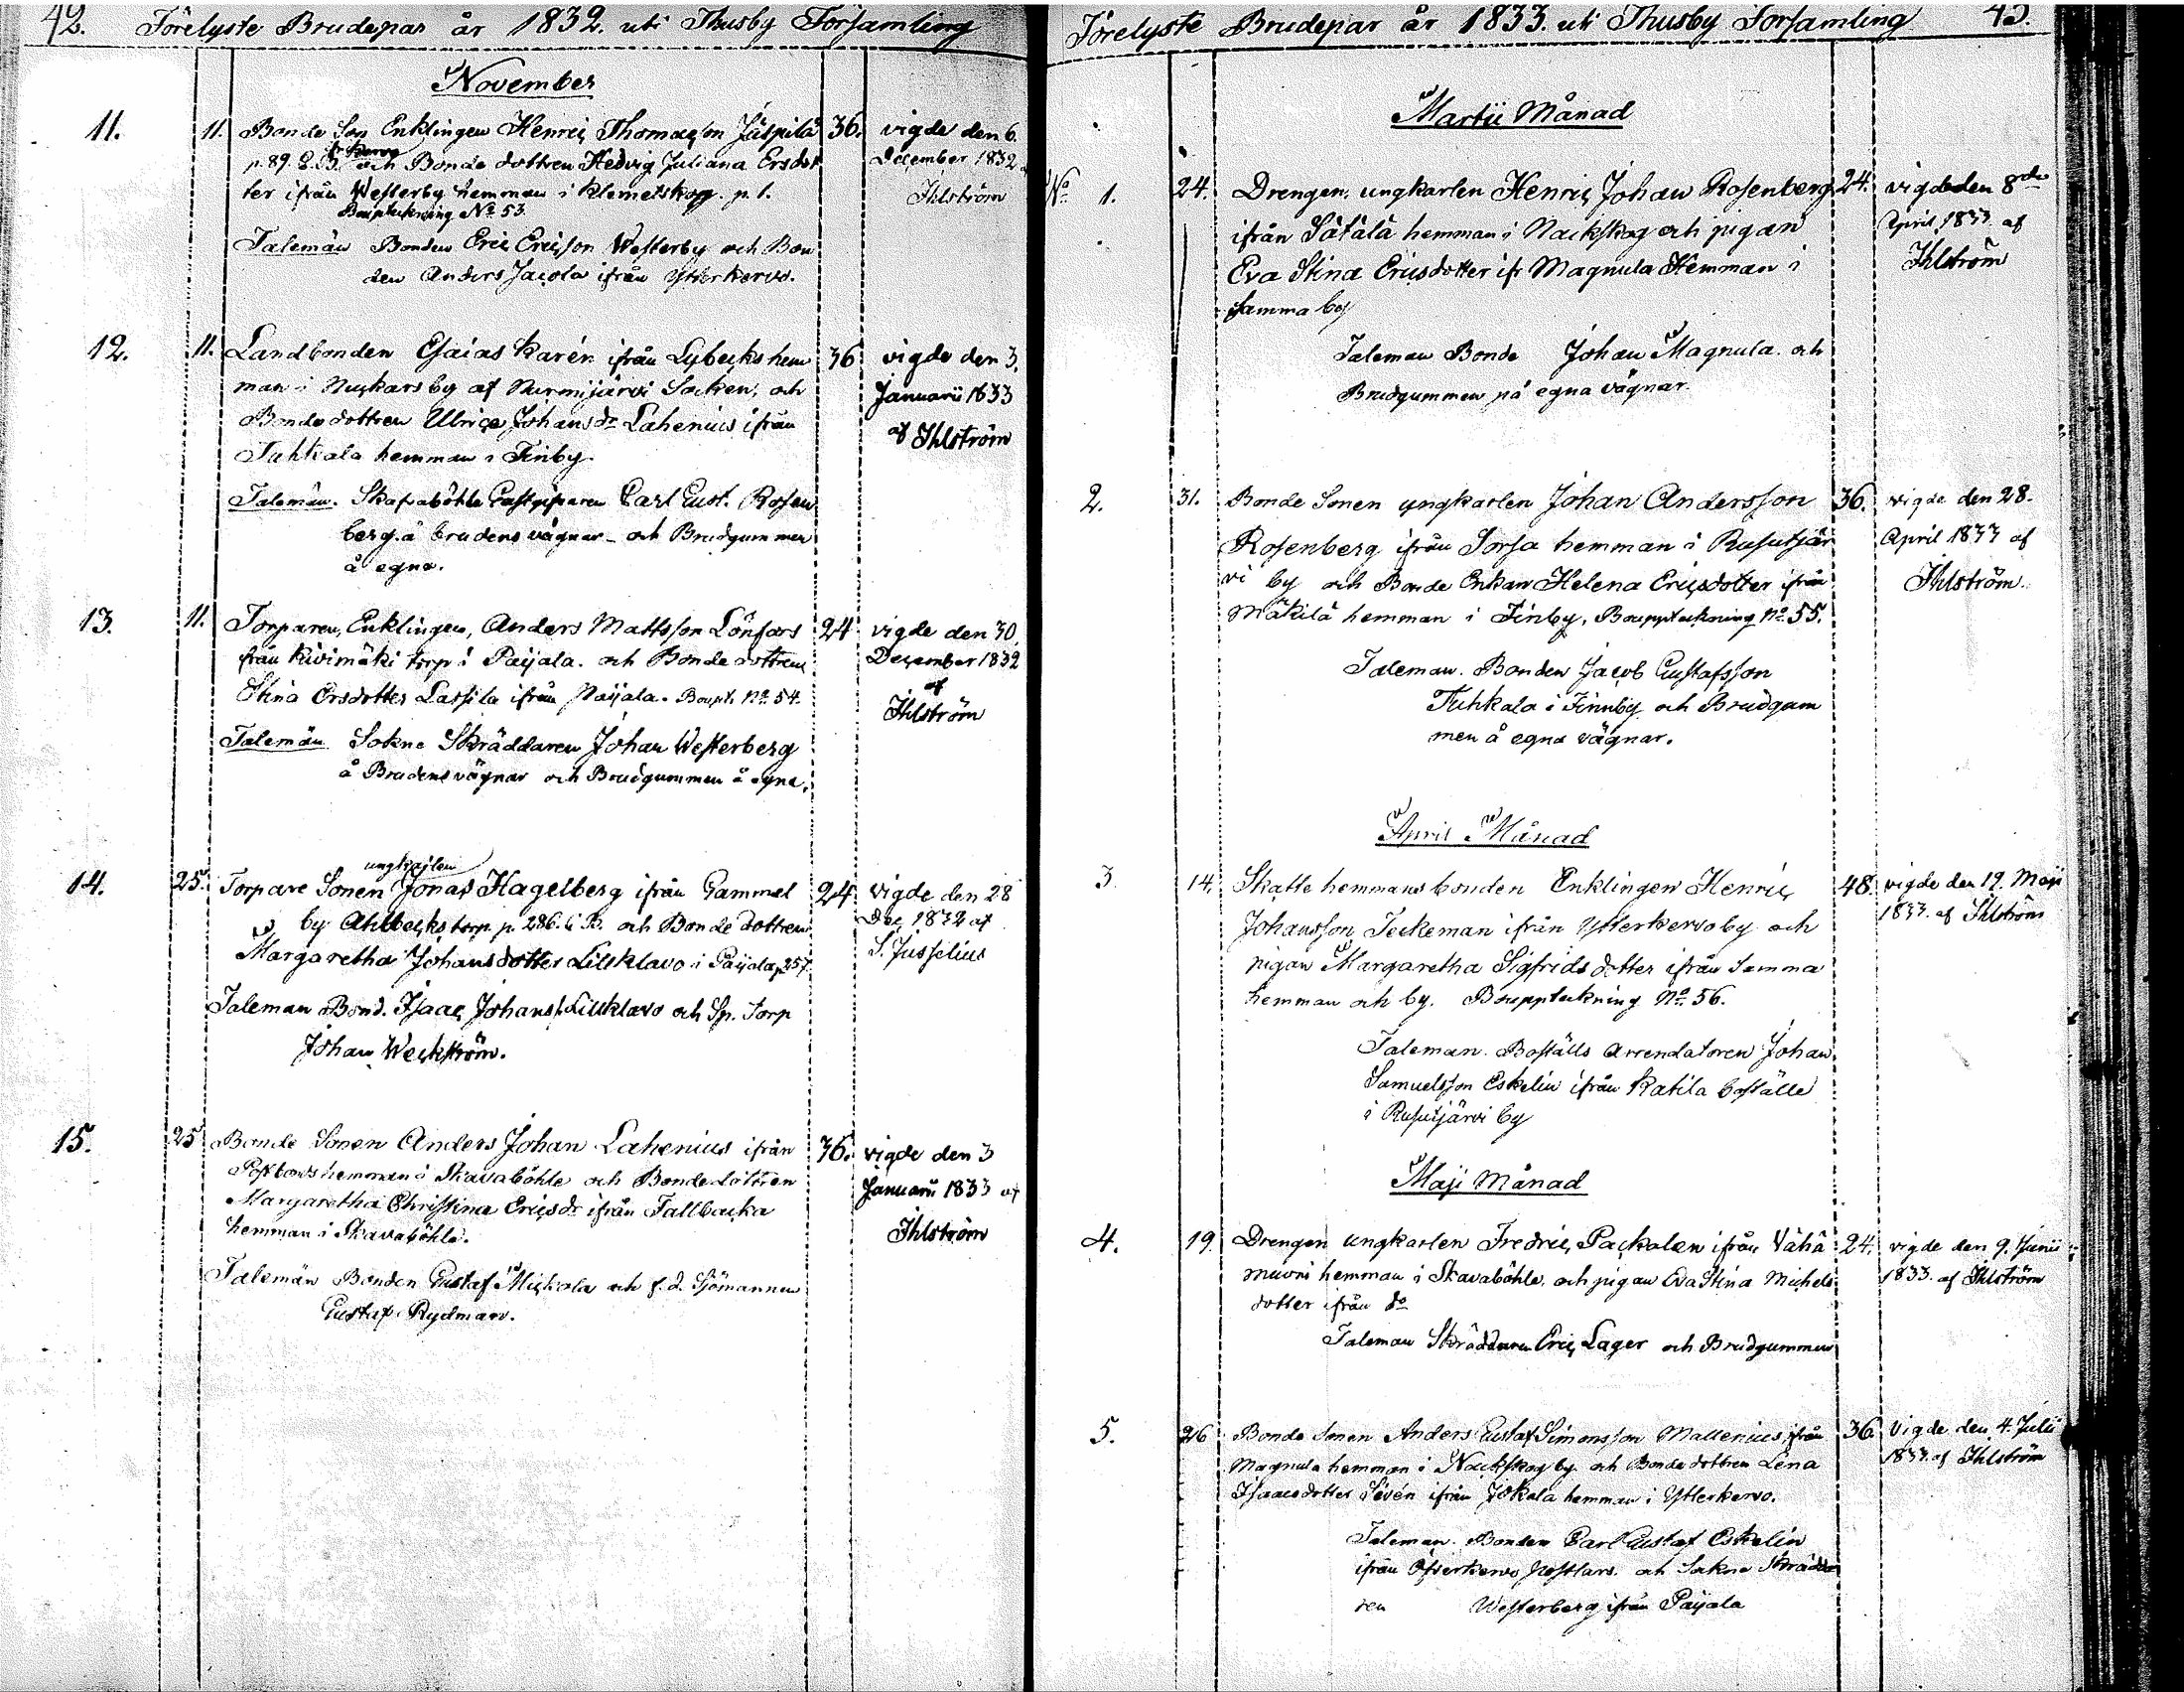 42. Förelyste Brudepar år 1832. uti Thusby Forsamling
November
11. 11. Bonde Son Enklingen Henric Thomasson Jäspilä 36. vigde den 6.
fr Kervo
p. 89. och Bonde dottren Hedvig Juliana Ersdot December 1832
ter ifrån Westerby hemman i Klemetskog. p. 1. Ihlström
Bouptekning No 53.
Talemän Bonden Eric Ericsson Westerby och Bon
den Anders Jacola ifrån Ytterkervo.
12. 11. Landbonden Esaias Karén ifrån Lybecks hem 36 vigde den 3.
man i Nuckarsby af Nurmijärvi Socken, och Januarii 1833
Bondedottren Ulrica Johansdr Lahenius ifrån af Ihlström
Tuhkala hemman i Finby.
Talemän. Skafvaböhle Gästgifvaren Carl Gust. Rosen
berg å brudens vägnar och Brudgummen
å egna.
13. 11. Torparen, Enklingen, Anders Mattsson Lönfors 24 vigde den 30
från Kivimäki torp i Paijala. och Bonde dottren December 1832
af
Stina Ersdotter Lassila ifrån Paijala. Boupt. No 54. Ihlström
Talemän Sokne Skräddaren Johan Westerberg
å Brudens vägnar och Brudgummen å egna.
ungkarlen
14. 25. Torpare Sonen Jonas Hagelberg ifrån Gammel 24 vigde den 28
by Ahlbacks torp p. 286. och Bonde dottren Dec 1832 af
Margaretha Johansdotter Lillklavo i Paijala p 257 S. Jusselius
Taleman Bond. Isaac Johanss. Lillklavo och Sp. Torp
Johan Weckström.
15. 25 Bonde Sonen Anders Johan Lahenius ifrån 36. vigde den 3
Postbonds hemman i Skavaböhle och Bonde dottren Januarii 1833 af
Margaretha Christina Ericsdr ifrån Tallbacka Ihlström
hemman i Skavaböhle.
Talemän Bonden Gustaf Mickola och f. d. Sjömannen
Gustaf Rydman.
Förelyste Brudepar år 1833. uti Thusby Forsamling 43.
Martii Månad
No 1. 24. Drengen ungkarlen Henric Johan Rosenberg 24. vigde den 8de
ifrån Sätälä hemman i Nackskog och pigan April 1833 af
Eva Stina Ericsdotter ifr Magnula Hemman i Ihlström
samma by
Taleman Bonde Johan Magnula och
Brudgummen på egna vägnar.
2. 31. Bonde Sonen ungkarlen Johan Andersson 36. vigde den 28.
Rosenberg ifrån Sorsa hemman i Rusutjär April 1833 af
vi by och Bonde Enkan Helena Ericsdotter ifrån Ihlström
Mäkilä hemman i Finby, Bouppteckning No 55.
Taleman. Bonden Jacob Gustafsson
Tuhkala i Finnby och Brudgum
men å egna vägnar.
April Månad
3 14. Skatte hemmans bonden Enklingen Henric 48. vigde den 19. Maji
Johansson Teckeman ifrån Ytterkervo by och 1833. af Ihlström
pigan Margaretha Sigfrids dotter ifrån Samma
hemman och by. Bouppteckning No 56.
Taleman. Boställs Arrendatoren Johan
Samuelsson Eskelin ifrån Katila boställe
i Rusutjärvi by
Maji Månad
4. 19. Drengen ungkarlen Fredric Packalen ifrån Vähä 24. vigde den 9. Junii
muoni hemman i Skavaböhle, och pigan Eva Stina Michels 1833. af Ihlström
dotter ifrån do
Taleman Skräddaren Eric Lager och Brudgummen
5. 26 Bonde Sonen Anders Gustaf Simonsson Mallenius ifrån 36 Vigde den 4. Julii
Magnula hemman i Nackskog by och Bonde dottren Lena 1833. af Ihlström
Isaacsdotter Sevén ifrån Jokala hemman i Ytterkervo.
Taleman. Bonden Carl Gustaf Eskelin
ifrån Öfverkervo och Sokne Skrädda
ren Westerberg ifrån Paijala